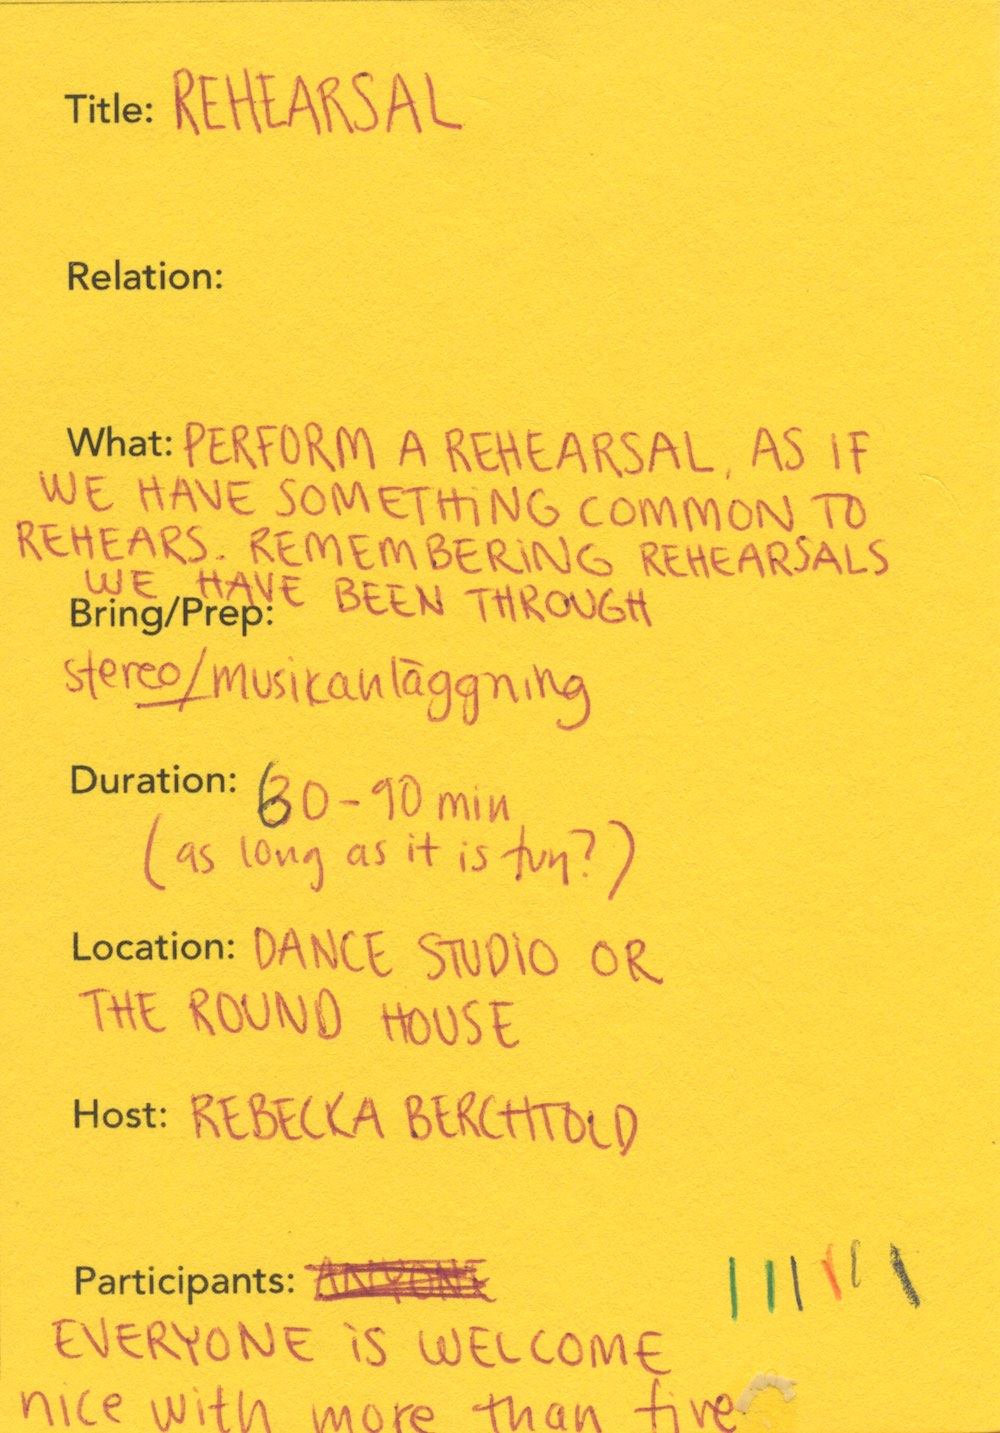 Title: REHEARSAL
Relation:
What: PERFORM A REHEARSAL, AS IF
WE HAVE SOMETHING COMMON TO
REHEARS. REMEMBERING REHEARSALS
WE HAVE BEEN THROUGH
Bring/Prep:
stereo/musikanläggning
Duration: 60-90 min
(as long as it is fun?)
Location: DANCE STUDIO OR
THE ROUND HOUSE
Host: REBECKA BERCHTOLD
Participants: ANYONE
EVERYONE IS WELCOME
nice with more than five